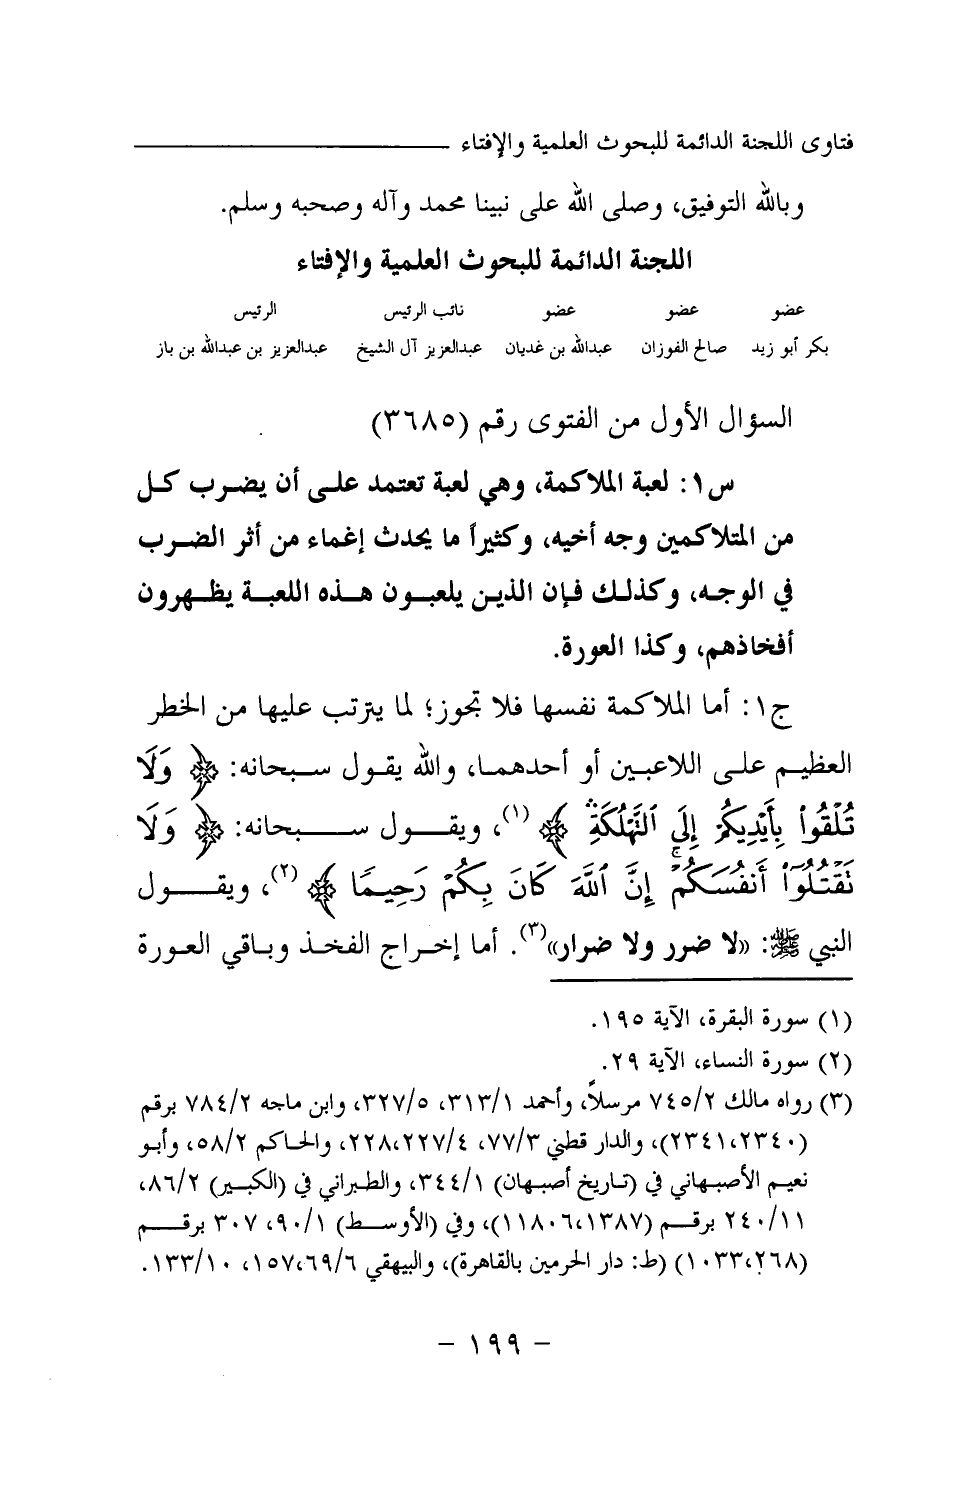 فتاوى اللجنة الدائمة للبحوث العلمية والإفتاء
وبالله التوفيق، وصلى الله على نبينا محمد وآله وصحبه وسلم.
اللجنة الدائمة للبحوث العلمية والإفتاء
عضو عضو عضو نائب الرئيس الرئيس
بكر أبو زيد صالح الفوزان عبدالله بن غديان عبدالعزيز آل الشيخ عبدالعزيز بن عبدالله بن باز
السؤال الأول من الفتوى رقم (٣٦٨٥)
س١: لعبة الملاكمة، وهي لعبة تعتمد على أن يضرب كل
من المتلاكمين وجه أخيه، وكثيراً ما يحدث إغماء من أثر الضرب
في الوجه، وكذلك فإن الذين يلعبون هذه اللعبة يظهرون
أفخاذهم، وكذا العورة.
ج١: أما الملاكمة نفسها فلا تجوز؛ لما يترتب عليها من الخطر
العظيم على اللاعبين أو أحدهما، والله يقول سبحانه: ﴿ وَلَا
تُلْقُوا۟ بِأَيْدِيكُمْ إِلَى ٱلتَّهْلُكَةِ ۛ ﴾(١)، ويقول سبحانه: ﴿ وَلَا
تَقْتُلُوٓا۟ أَنفُسَكُمْ ۚ إِنَّ ٱللَّهَ كَانَ بِكُمْ رَحِيمًا ﴾(٢)، ويقول
النبي ﷺ: «لا ضرر ولا ضرار»(٣). أما إخراج الفخذ وباقي العورة
(١) سورة البقرة، الآية ١٩٥.
(٢) سورة النساء، الآية ٢٩.
(٣) رواه مالك ٧٤٥/٢ مرسلاً، وأحمد ٣١٣/١، ٣٢٧/٥، وابن ماجه ٧٨٤/٢ برقم
(٢٣٤١،٢٣٤٠)، والدار قطني ٧٧/٣، ٢٢٨،٢٢٧/٤، والحاكم ٥٨/٢، وأبو
نعيم الأصبهاني في (تاريخ أصبهان) ٣٤٤/١، والطبراني في (الكبير) ٨٦/٢،
٢٤٠/١١ برقم (١١٨٠٦،١٣٨٧)، وفي (الأوسط) ٩٠/١، ٣٠٧ برقم
(١٠٣٣،٢٦٨) (ط: دار الحرمين بالقاهرة)، والبيهقي ١٥٧،٦٩/٦، ١٣٣/١٠.
- ١٩٩ -